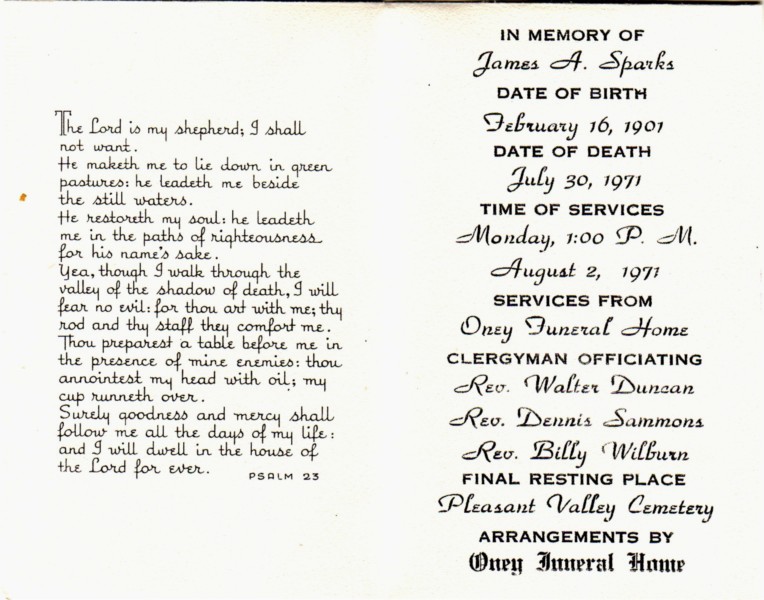 The Lord is my shepherd; I shall
not want.
He maketh me to lie down in green
pastures: he leadeth me beside
the still waters.
He restoreth my soul: he leadeth
me in the paths of righteousness
for his name's sake.
Yea, though I walk through the
valley of the shadow of death, I will
fear no evil: for thou art with me; thy
rod and thy staff they comfort me.
Thou preparest a table before me in
the presence of mine enemies: thou
annointest my head with oil; my
cup runneth over.
Surely goodness and mercy shall
follow me all the days of my life:
and I will dwell in the house of
the Lord for ever.
PSALM 23
IN MEMORY OF
James A. Sparks
DATE OF BIRTH
February 16, 1901
DATE OF DEATH
July 30, 1971
TIME OF SERVICES
Monday, 1:00 P. M.
August 2, 1971
SERVICES FROM
Oney Funeral Home
CLERGYMAN OFFICIATING
Rev. Walter Duncan
Rev. Dennis Sammons
Rev. Billy Wilburn
FINAL RESTING PLACE
Pleasant Valley Cemetery
ARRANGEMENTS BY
Oney Funeral Home